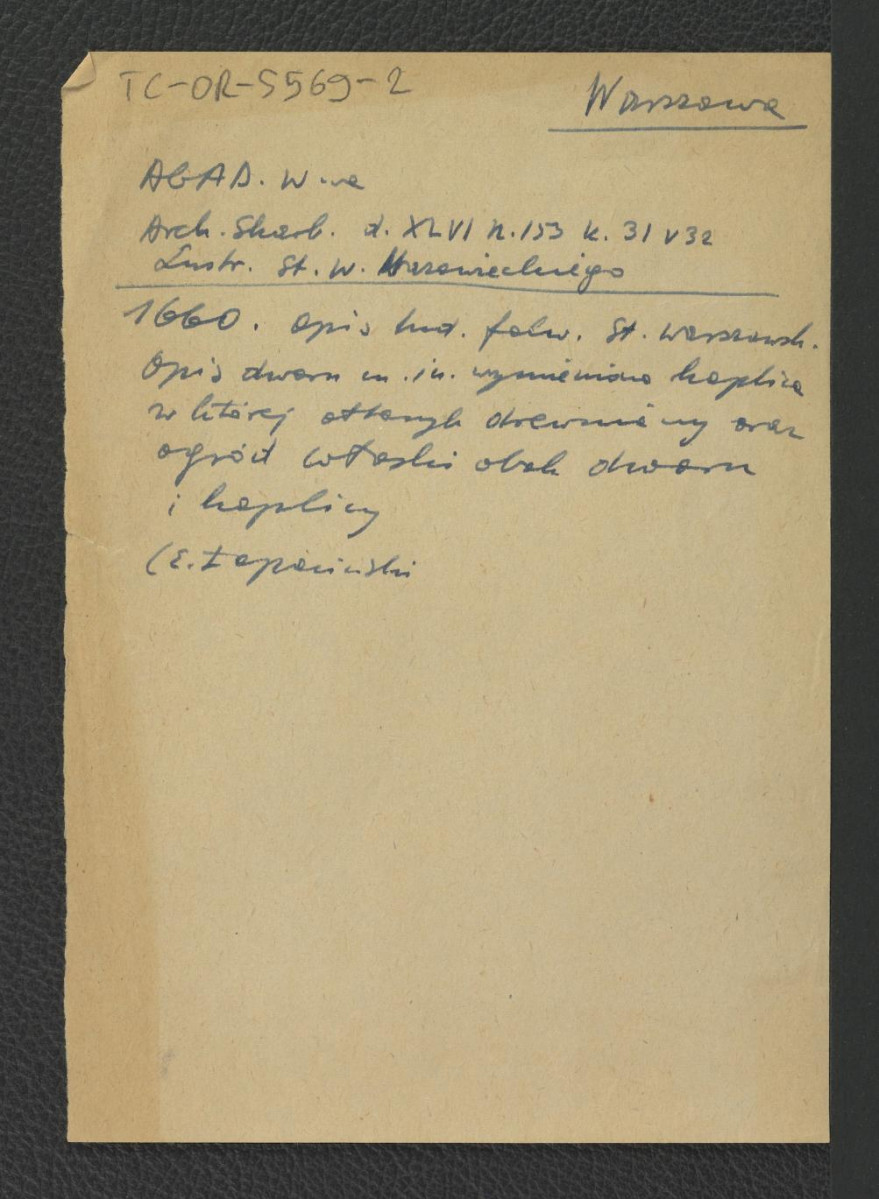 TC-OR-5569-2
Warszawa
AGAD. W-wa
Arch. Skarb. d. XLVI n. 153 k. 31 v 32
Lustr. St. W. Mazowieckiego
1660. Opis bud. folw. St. Warszawsk.
Opis dworu m. in. wymieniona kaplica
w której ottarzyk drewniany oraz
ogród włoski obok dworu
i kaplicy
(E. Łopaciński